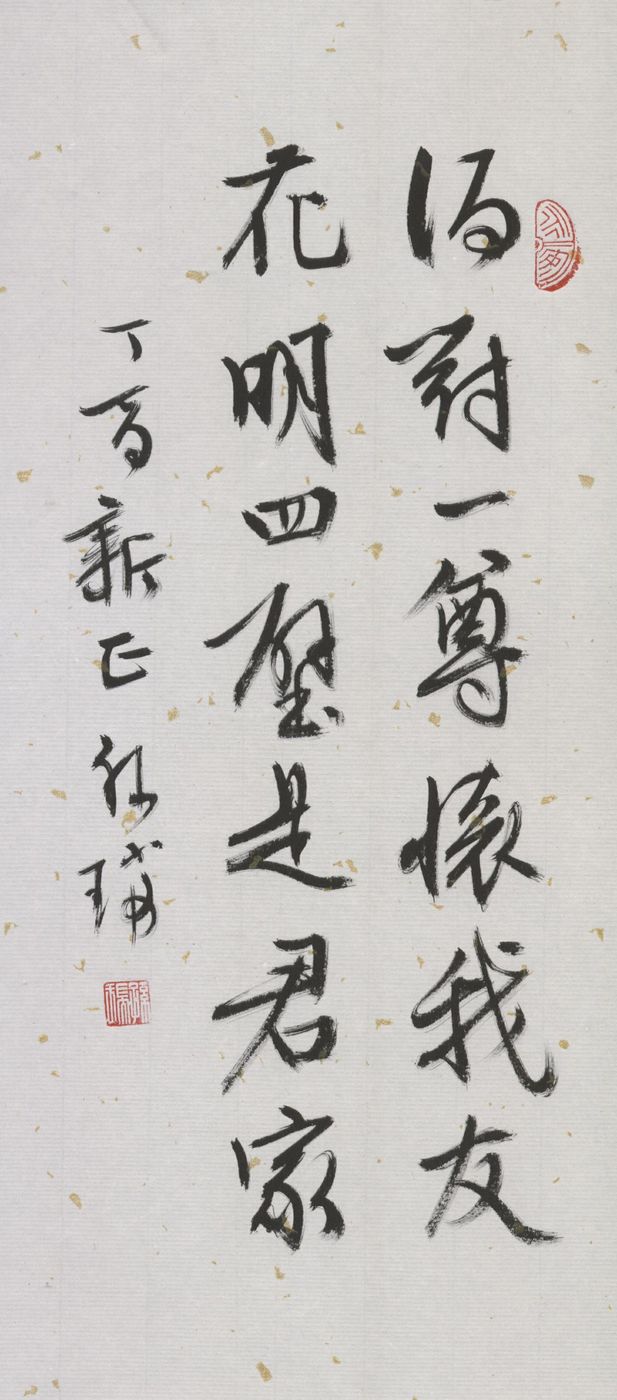 酒對一尊懷我友
花明四壁是君家
丁酉新正